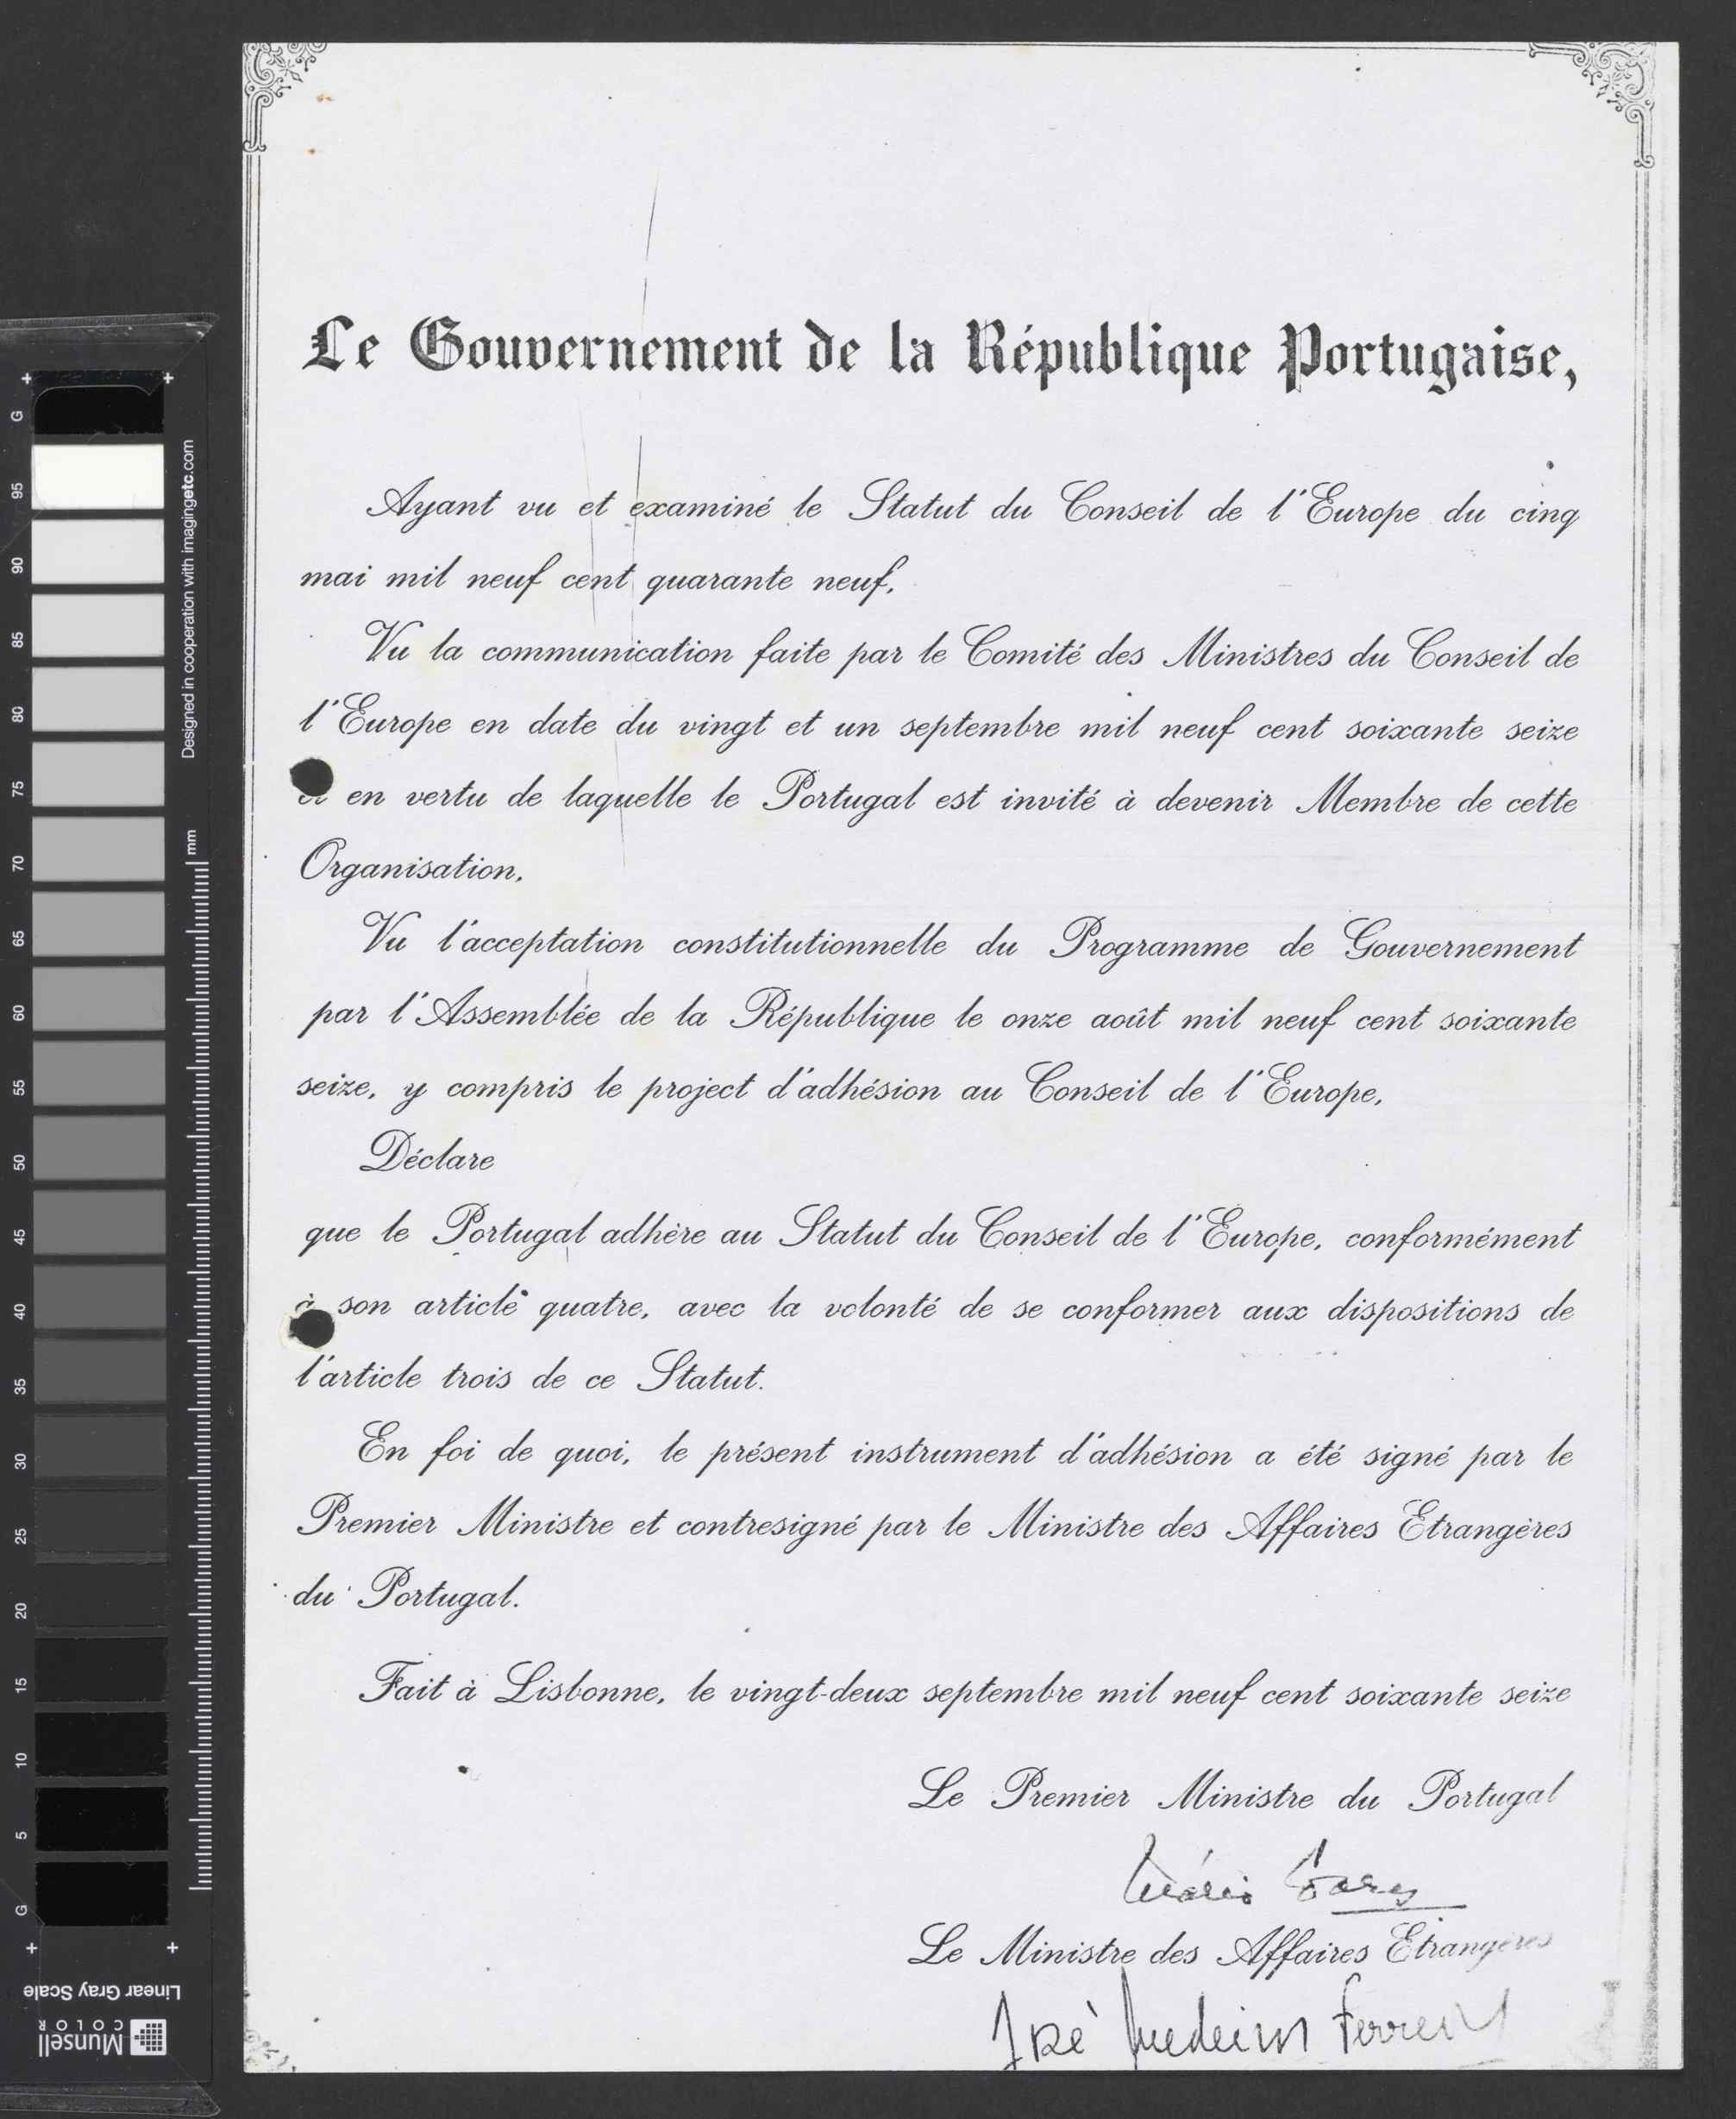 Le Gouvernement de la République Portugaise,
Ayant vu et examiné le Statut du Conseil de l'Europe du cinq
mai mil neuf cent quarante neuf,
Vu la communication faite par le Comité des Ministres du Conseil de
l'Europe en date du vingt et un septembre mil neuf cent soixante seize
et en vertu de laquelle le Portugal est invité à devenir Membre de cette
Organisation,
Vu l'acceptation constitutionnelle du Programme de Gouvernement
par l'Assemblée de la République le onze août mil neuf cent soixante
seize, y compris le project d'adhésion au Conseil de l'Europe,
Déclare
que le Portugal adhère au Statut du Conseil de l'Europe, conformément
à son article quatre, avec la volonté de se conformer aux dispositions de
l'article trois de ce Statut.
En foi de quoi, le présent instrument d'adhésion a été signé par le
Premier Ministre et contresigné par le Ministre des Affaires Etrangères
du Portugal.
Fait à Lisbonne, le vingt-deux septembre mil neuf cent soixante seize
Le Premier Ministre du Portugal
Mário Soares
Le Ministre des Affaires Etrangères
José Medeiros Ferreira
G
95
90
85
80
75
70
65
60
55
50
45
40
35
30
25
20
15
10
5
G
Designed in cooperation with imagingetc.com
mm
Linear Gray Scale
Munsell
COLOR